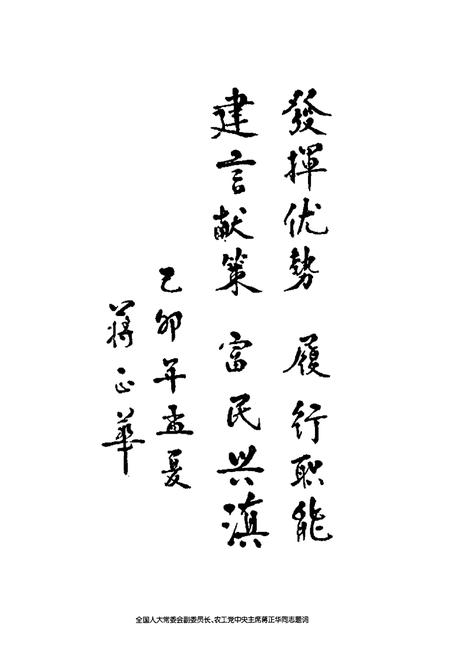 發揮优勢 履行职能
建言献策 富民兴滇
己卯年孟夏
蒋正華
全国人大常委会副委员长、农工党中央主席蒋正华同志题词